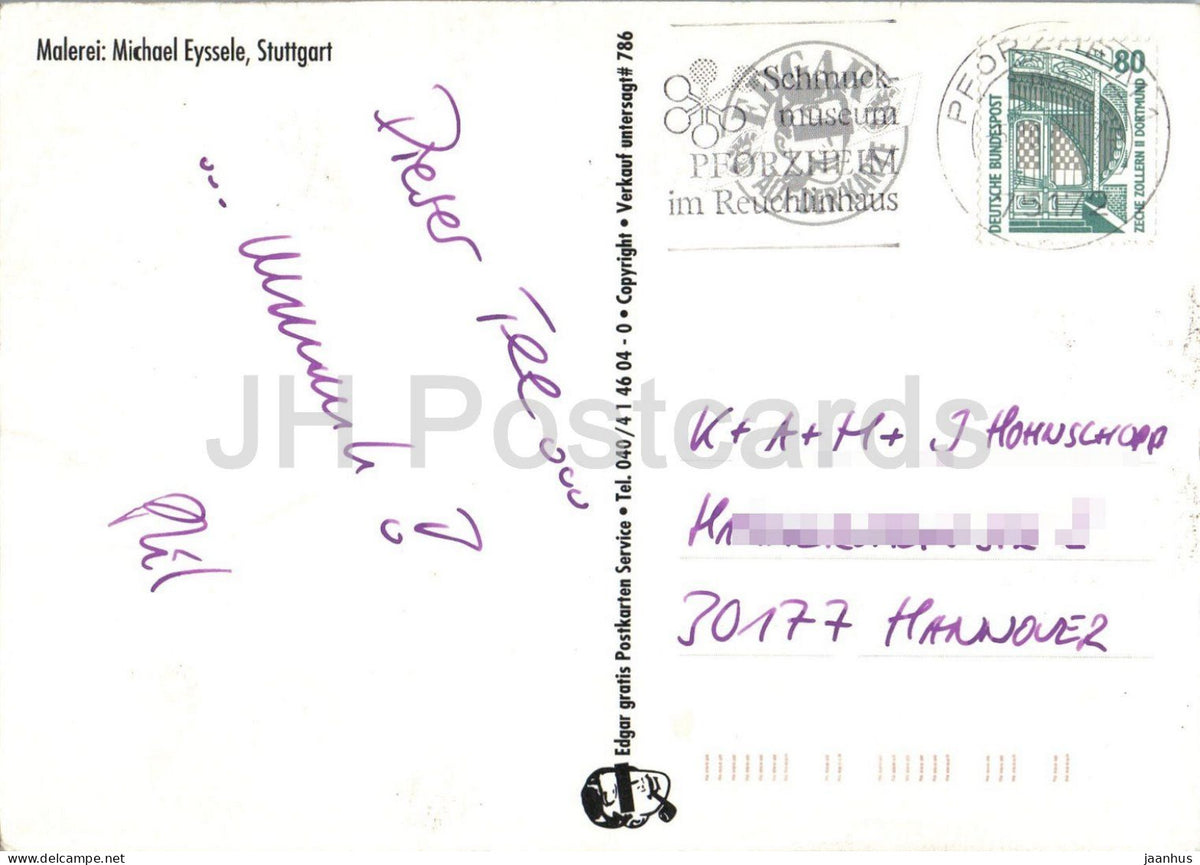 Malerei: Michael Eyssele, Stuttgart
Dieser Tee ...
...
Phil
Edgar gratis Postkarten Service • Tel. 040/4 1 46 04 - 0 • Copyright • Verkauf untersagt# 786
EDGAR
Schmuck-
museum
PFORZHEIM
im Reuchlinhaus
PFORZHEIM
75172
80
DEUTSCHE BUNDESPOST
ZECHE ZOLLERN II DORTMUND
K + A + M + J HOHNSCHOPP
30177 HANNOVER
JH Postcards
eu.avanenurme.com
jaanhus